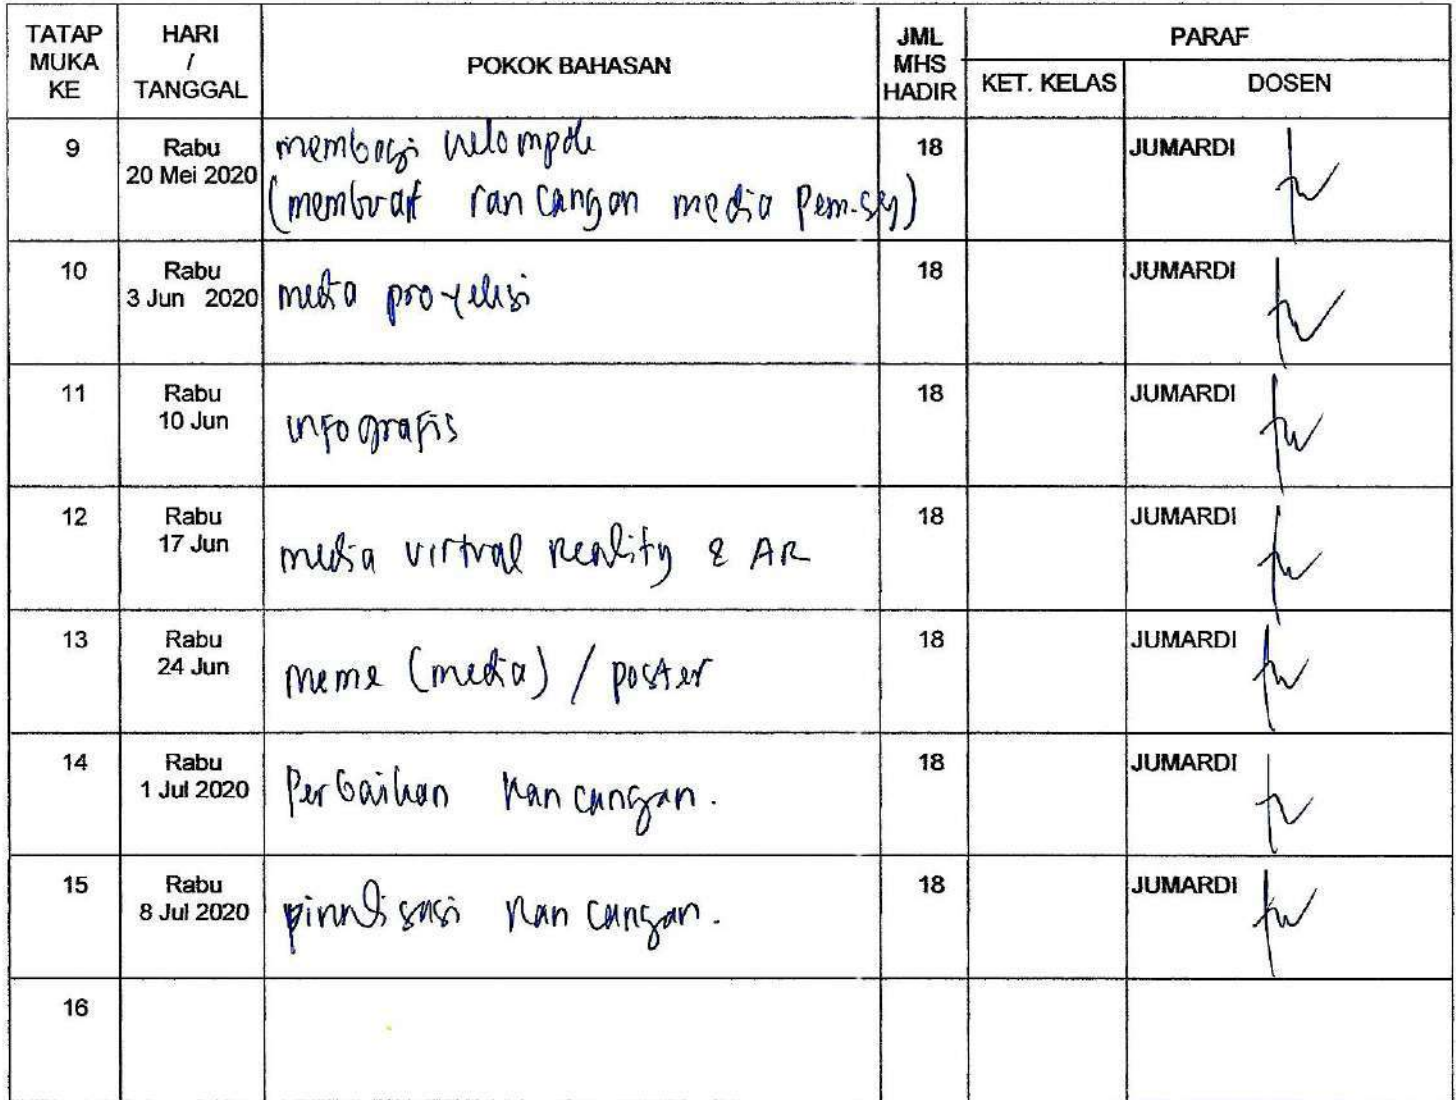 TATAP MUKA KE HARI / TANGGAL POKOK BAHASAN JML MHS HADIR PARAF
KET. KELAS DOSEN
9 Rabu 20 Mei 2020 membagi kelompok 18 JUMARDI
(membuat rancangan media Pem.)
10 Rabu 3 Jun 2020 media proyeksi 18 JUMARDI
11 Rabu 10 Jun infografis 18 JUMARDI
12 Rabu 17 Jun media virtual Reality & AR 18 JUMARDI
13 Rabu 24 Jun meme (media) / poster 18 JUMARDI
14 Rabu 1 Jul 2020 Perbaikan Rancangan. 18 JUMARDI
15 Rabu 8 Jul 2020 finalisasi Rancangan. 18 JUMARDI
16